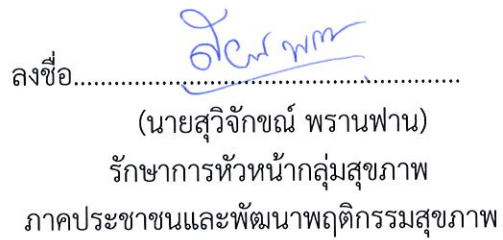 ลงชื่อ........................................................
(นายสุวิจักขณ์ พรานฟาน)
รักษาการหัวหน้ากลุ่มสุขภาพ
ภาคประชาชนและพัฒนาพฤติกรรมสุขภาพ